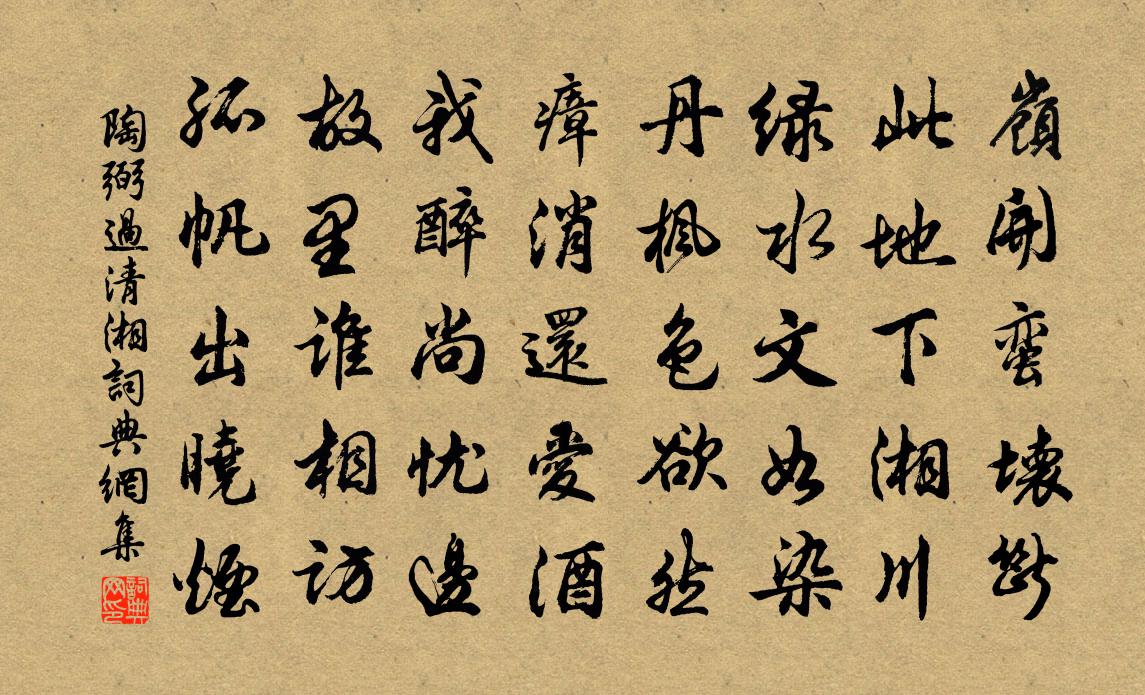 嶺開蛮壊断
此地下湘川
緑水文如染
丹楓色欲然
瘴消還愛酒
我醉尚忧邊
故里誰相訪
孤帆出曉煙
陶弼過清湘詞典網集
詞典网印